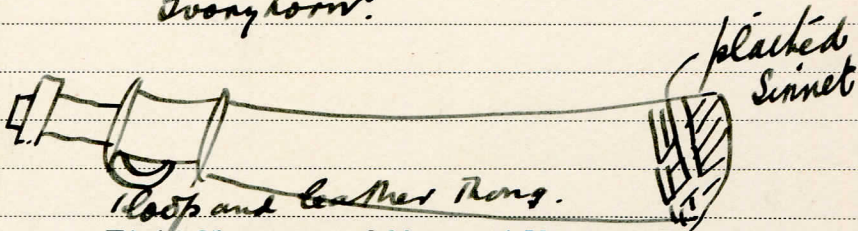 Ivory horn.
plaited
Sinnet
loop and leather thong.